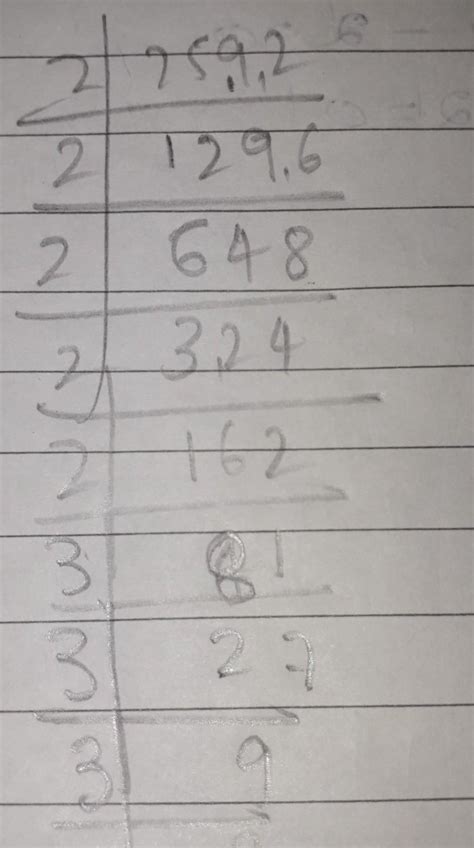 2 259,2
2 129,6
2 648
2 324
2 162
3 81
3 27
3 9